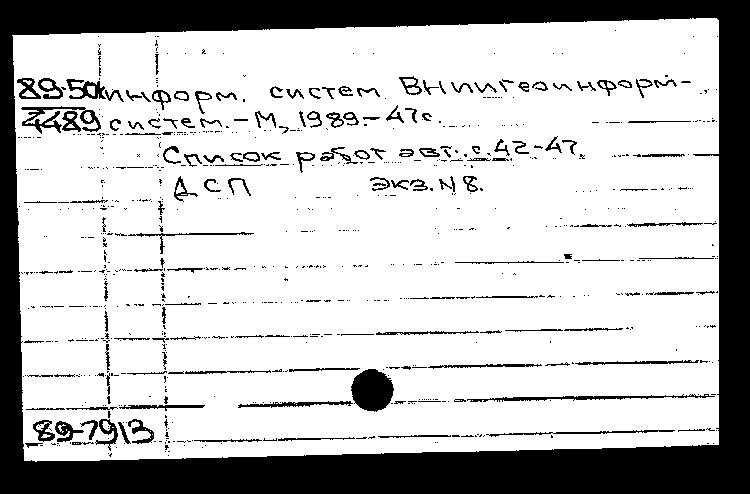 89-50к информ. систем ВНИИгеоинформ-
4489 систем. - М., 1989. - 47с.
Список работ авт.: с. 42-47.
ДСП экз. N 8.
89-7913